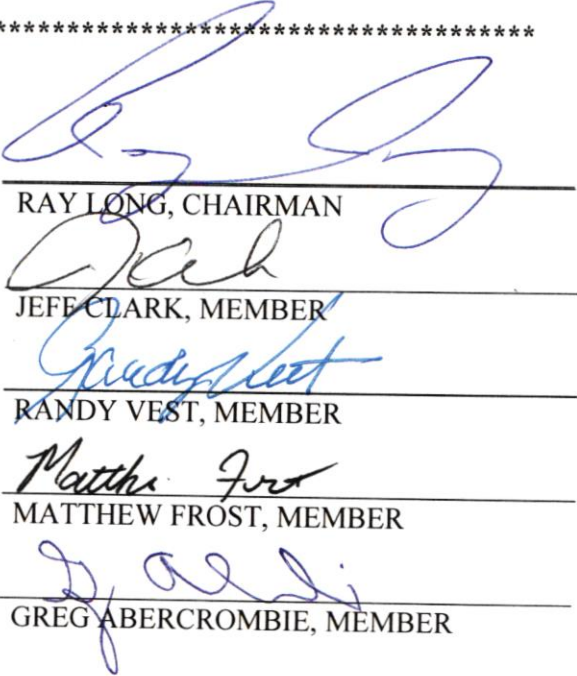 *************************************
Ray Long
RAY LONG, CHAIRMAN
JEFF CLARK, MEMBER
Randy Vest
RANDY VEST, MEMBER
Matthew Frost
MATTHEW FROST, MEMBER
GREG ABERCROMBIE, MEMBER